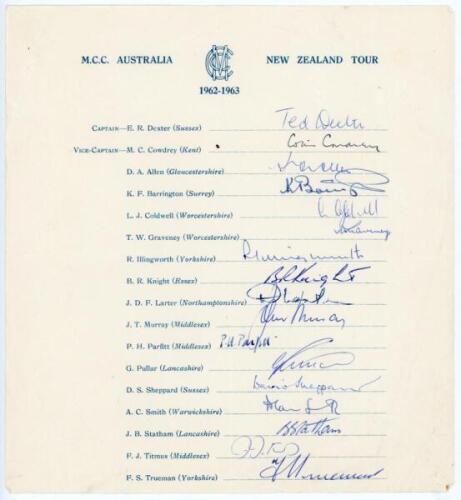 M.C.C. AUSTRALIA MCC NEW ZEALAND TOUR
1962-1963
CAPTAIN—E. R. Dexter (Sussex) Ted Dexter
VICE-CAPTAIN—M. C. Cowdrey (Kent) Colin Cowdrey
D. A. Allen (Gloucestershire)
K. F. Barrington (Surrey) K Barrington
L. J. Coldwell (Worcestershire) L Coldwell
T. W. Graveney (Worcestershire) Graveney
R. Illingworth (Yorkshire) R Illingworth
B. R. Knight (Essex) B R Knight
J. D. F. Larter (Northamptonshire)
J. T. Murray (Middlesex) John Murray
P. H. Parfitt (Middlesex) P.H. Parfitt
G. Pullar (Lancashire)
D. S. Sheppard (Sussex) David Sheppard
A. C. Smith (Warwickshire) Alan Smith
J. B. Statham (Lancashire) J B Statham
F. J. Titmus (Middlesex)
F. S. Trueman (Yorkshire) F S Trueman